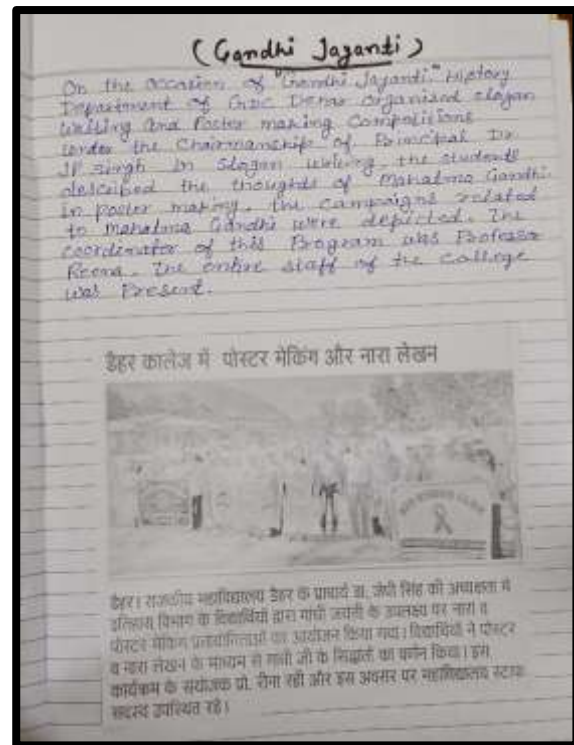 (Gandhi Jayanti)
On the occasion of "Gandhi Jayanti" History
Department of GDC Dehar Organised slogan
writing and Poster making Competitions
under the Chairmanship of Principal Dr.
JP singh In Slogan writing, the students
described the thoughts of Mahatma Gandhi
in poster making, the campaigns related
to mahatma Gandhi were depicted. The
coordinator of this Program was Professor
Reena. The entire staff of the College
was Present.
डैहर कालेज में पोस्टर मेकिंग और नारा लेखन
RED RIBBON CLUB
डैहर। राजकीय महाविद्यालय डैहर के प्राचार्य डा. जेपी सिंह की अध्यक्षता में
इतिहास विभाग के विद्यार्थियों द्वारा गांधी जयंती के उपलक्ष्य पर नारा व
पोस्टर मेकिंग प्रतियोगिताओं का आयोजन किया गया। विद्यार्थियों ने पोस्टर
व नारा लेखन के माध्यम से गांधी जी के सिद्धांतों का वर्णन किया। इस
कार्यक्रम के संयोजक प्रो. रीना रही और इस अवसर पर महाविद्यालय स्टाफ
सदस्य उपस्थित रहे।